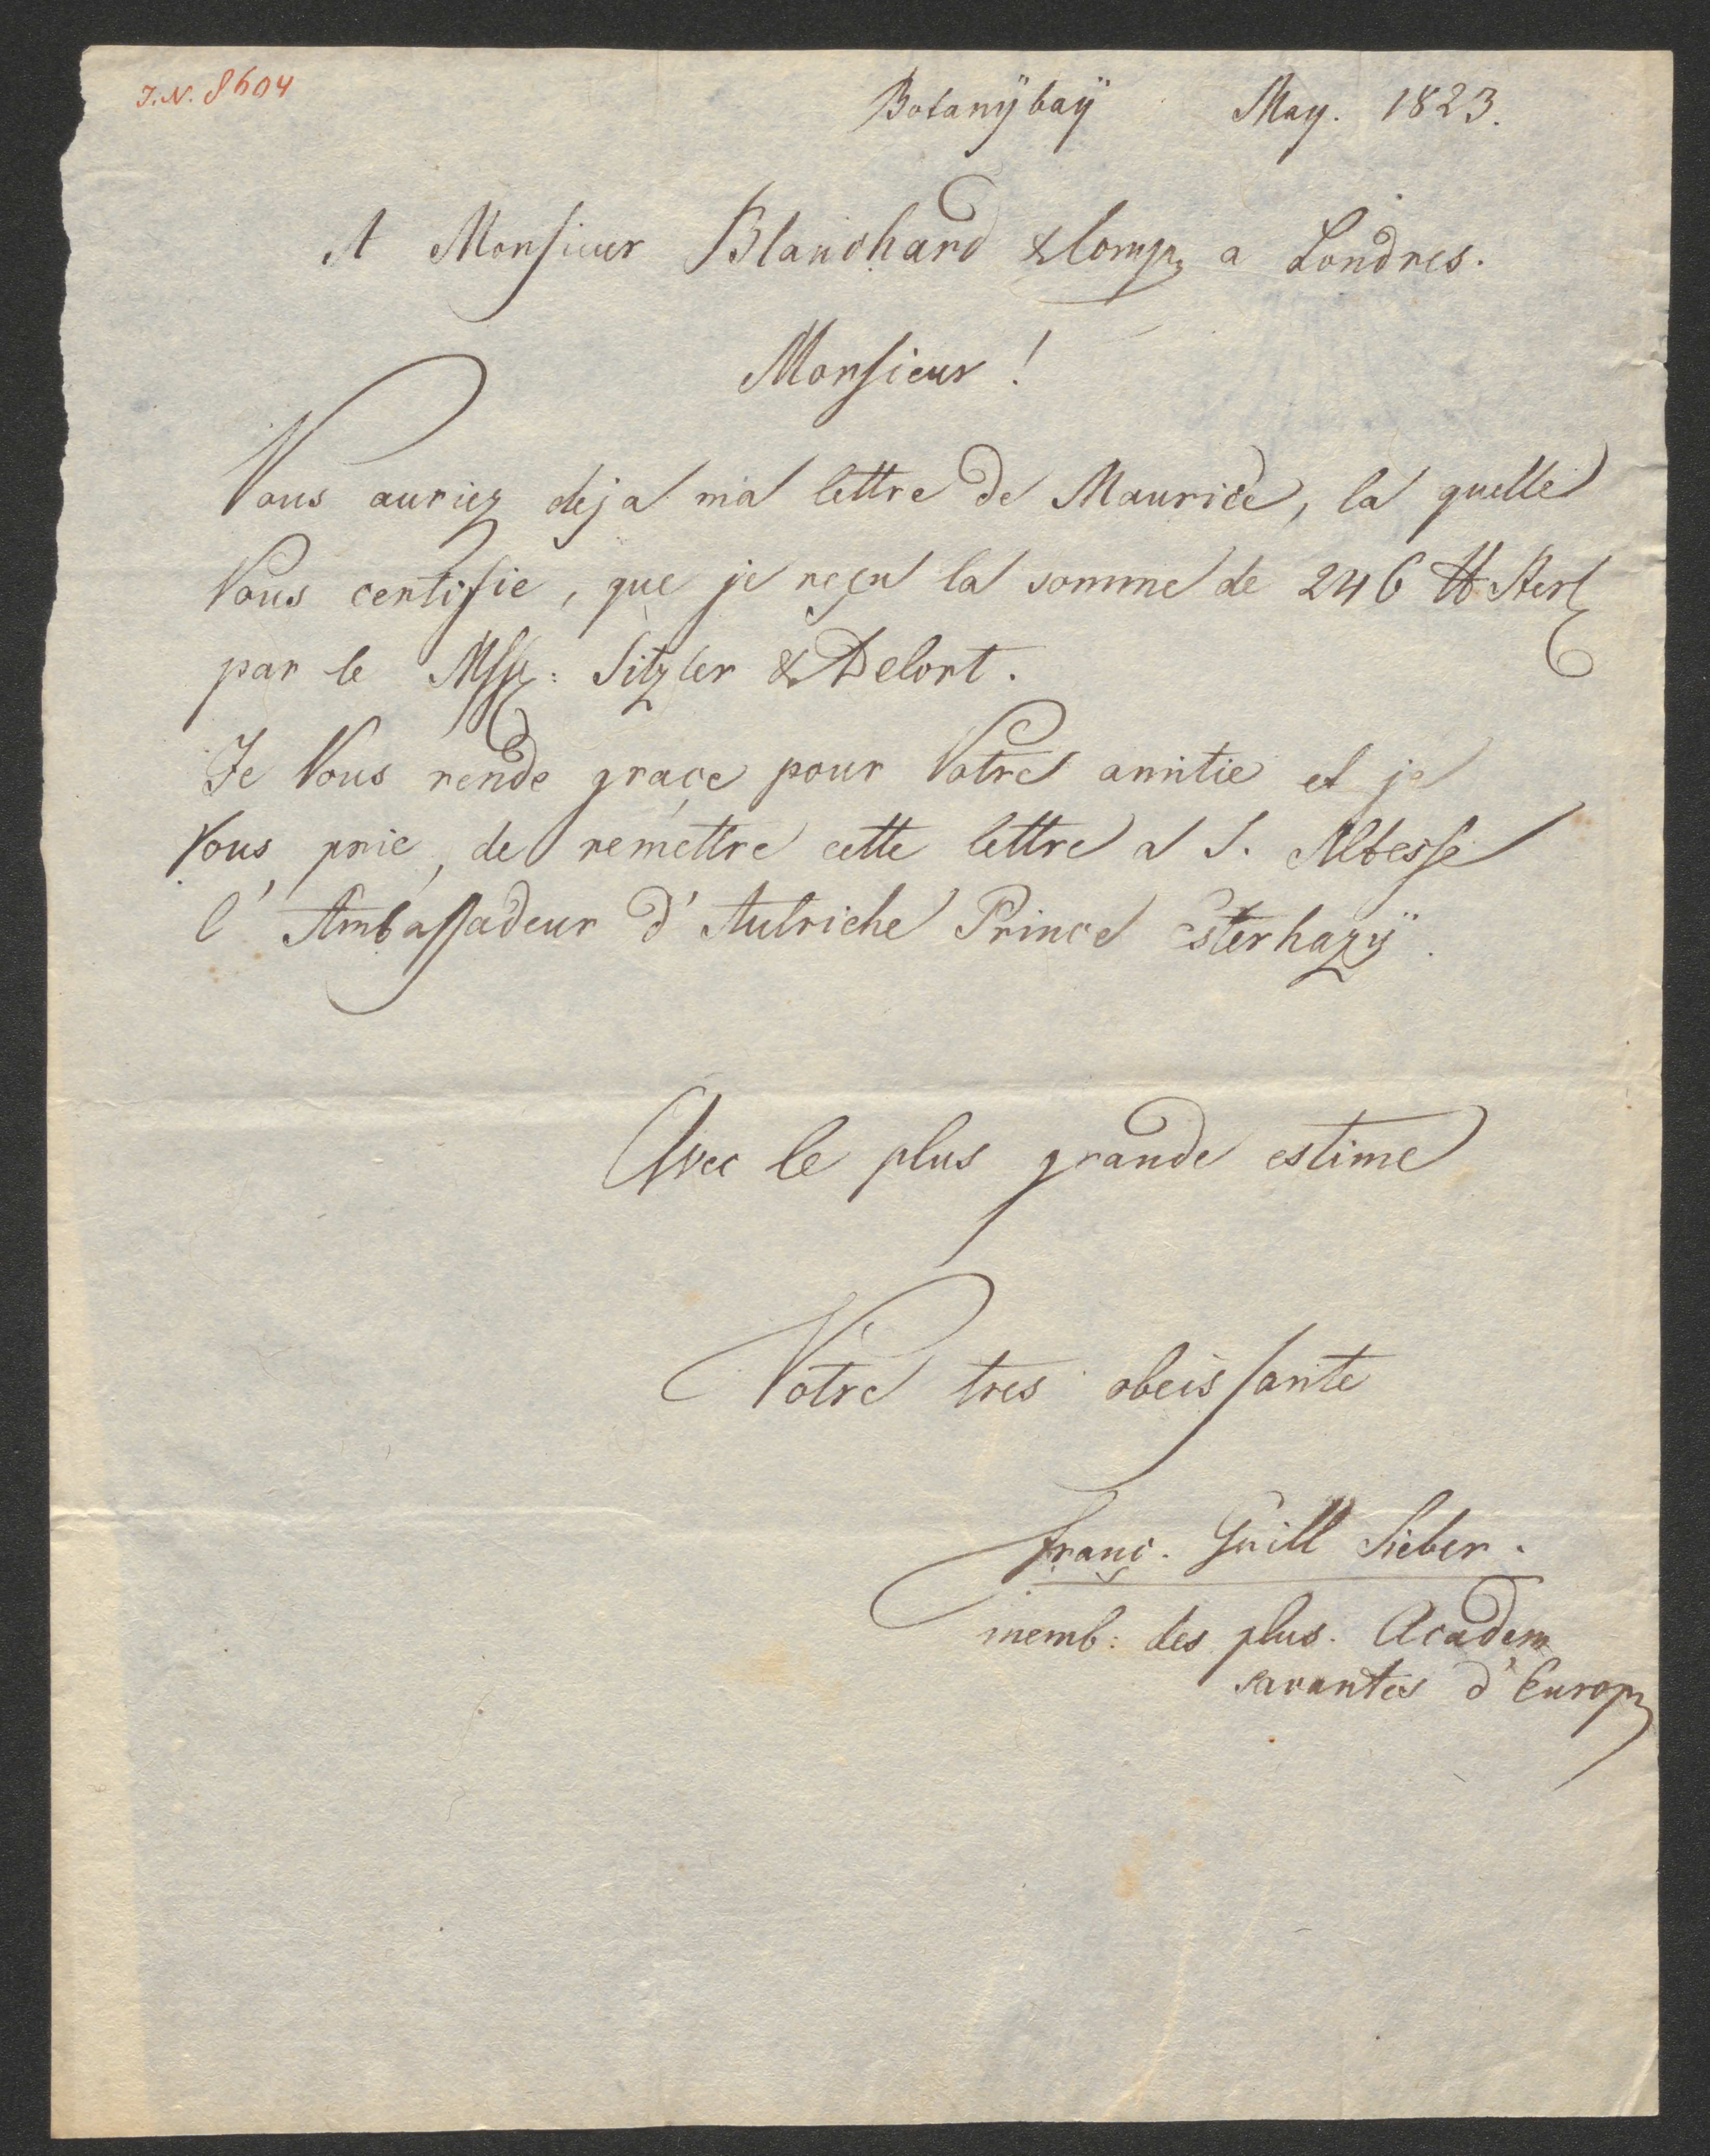 J.N. 8604
Botanÿbaÿ May. 1823.
A Monsieur Blanchard & Comp. a Londres.
Monsieur!
Vous auriez deja ma lettre de Maurice, la quelle
Vous certifie, que je reçu la somme de 246 ℔ Sterl
par le Mss: Sitzler & Delort.
Je Vous rende graçe pour Votre amitie et je
Vous prie, de remettre cette lettre a S. Altesse
l'Ambassadeur d'Autriche Prince Esterhazÿ.
Avec le plus grande estime
Votre tres obeissante
franç. Guill Sieber.
memb: des plus. Academ
savantes d'Europ